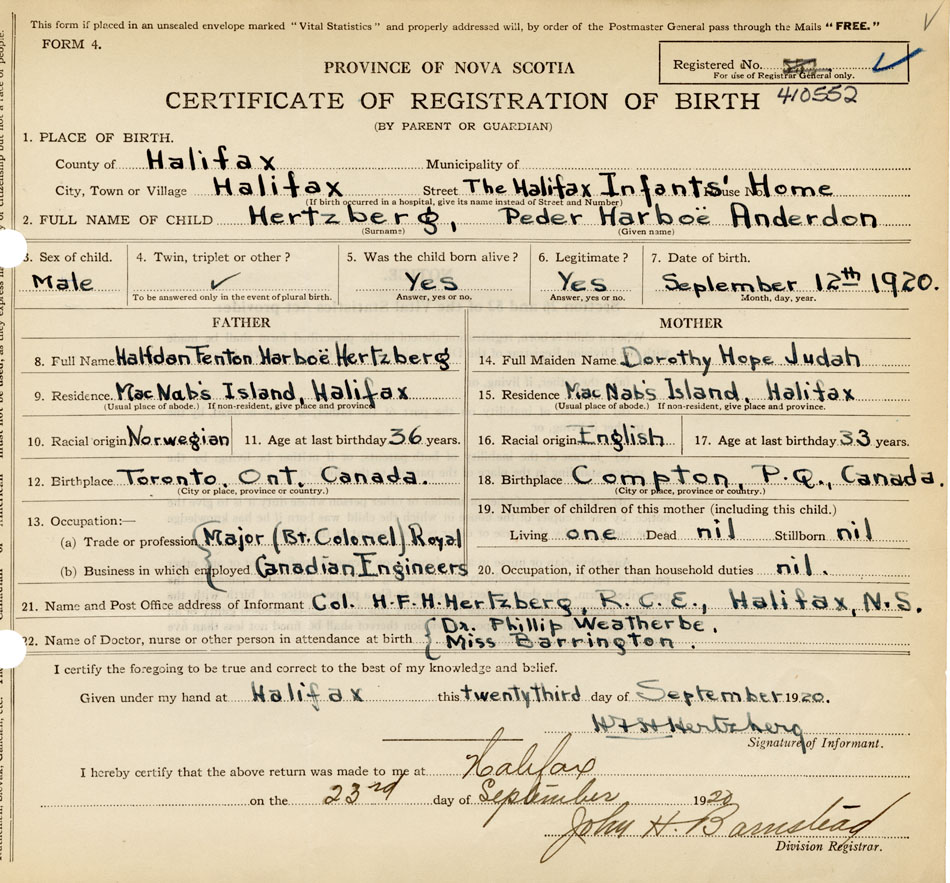 This form if placed in an unsealed envelope marked "Vital Statistics" and properly addressed will, by order of the Postmaster General pass through the Mails "FREE."
FORM 4.
Registered No.
For use of Registrar General only.
410552
PROVINCE OF NOVA SCOTIA
CERTIFICATE OF REGISTRATION OF BIRTH
(BY PARENT OR GUARDIAN)
1. PLACE OF BIRTH.
County of Halifax Municipality of
City, Town or Village Halifax Street The Halifax Infants' Home
(If birth occurred in a hospital, give its name instead of Street and Number)
2. FULL NAME OF CHILD Hertzberg, Peder Harboë Anderdon
(Surname) (Given name)
3. Sex of child. 4. Twin, triplet or other? 5. Was the child born alive? 6. Legitimate? 7. Date of birth.
Male ✓ Yes Yes September 12th 1920.
To be answered only in the event of plural birth. Answer, yes or no. Answer, yes or no. Month, day, year.
FATHER
8. Full Name Halfdan Fenton Harboë Hertzberg
9. Residence. MacNab's Island, Halifax
(Usual place of abode.) If non-resident, give place and province
10. Racial origin Norwegian 11. Age at last birthday 36 years.
12. Birthplace Toronto, Ont, Canada.
(City or place, province or country.)
13. Occupation:—
(a) Trade or profession Major (Bt. Colonel) Royal
(b) Business in which employed Canadian Engineers
MOTHER
14. Full Maiden Name Dorothy Hope Judah
15. Residence MacNab's Island, Halifax
(Usual place of abode.) If non-resident, give place and province.
16. Racial origin English 17. Age at last birthday 33 years.
18. Birthplace Compton, P.Q., Canada.
(City or place, province or country.)
19. Number of children of this mother (including this child.)
Living one Dead nil Stillborn nil
20. Occupation, if other than household duties nil.
21. Name and Post Office address of Informant Col. H.F.H. Hertzberg, R.C.E., Halifax, N.S.
22. Name of Doctor, nurse or other person in attendance at birth Dr. Phillip Weatherbe.
Miss Barrington.
I certify the foregoing to be true and correct to the best of my knowledge and belief.
Given under my hand at Halifax this twentythird day of September 1920.
HFH Hertzberg
Signature of Informant.
I hereby certify that the above return was made to me at Halifax
on the 23rd day of September 1920
John H. Barnstead
Division Registrar.